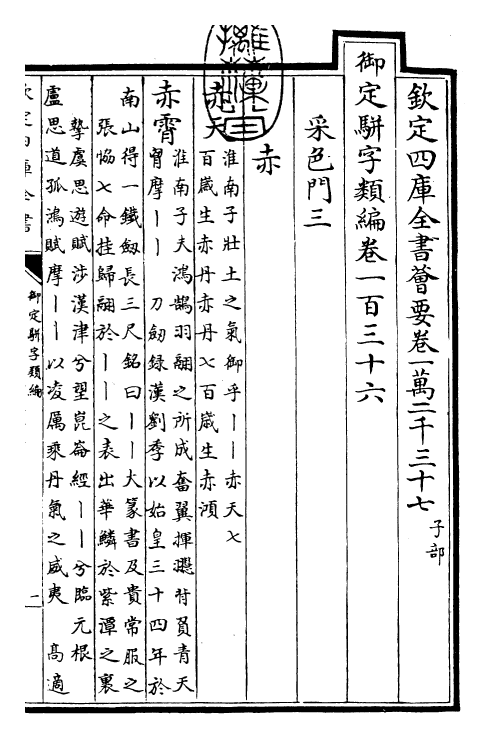 欽定四庫全書薈要卷一萬二千三十七
子部
御定駢字類編卷一百三十六
采色門三
赤
赤天
淮南子壯土之氣御乎丨丨赤天七
百歲生赤丹赤丹七百歲生赤澒
赤霄
淮南子夫鴻鵠羽翮之所成奮翼揮䎘背負青天
膺摩丨丨 刀劒錄漢劉季以始皇三十四年於
南山得一鐵劒長三尺銘曰丨丨大篆書及貴常服之
張協七命挂歸翮於丨丨之表出華鱗於紫潭之裏
摯虞思遊賦涉漢津兮望崑崙經丨丨兮臨元根
盧思道孤鴻賦摩丨丨以凌厲乘丹氣之威夷 高適
欽定四庫全書
御定駢字類編
一